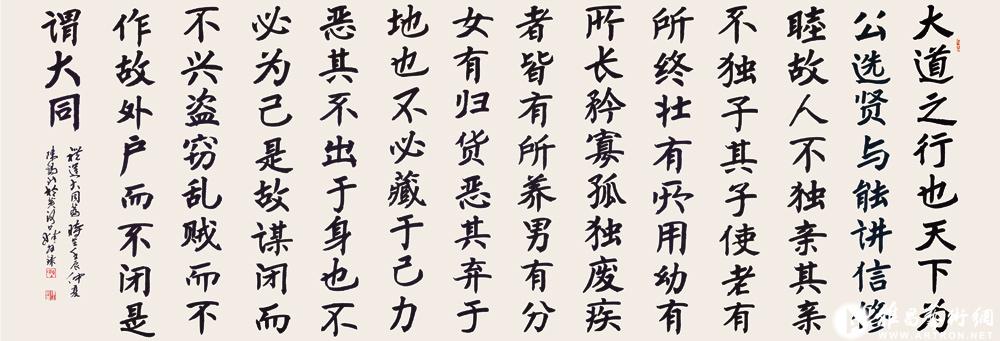 大道之行也天下为
公选贤与能讲信修
睦故人不独亲其亲
不独子其子使老有
所终壮有所用幼有
所长矜寡孤独废疾
者皆有所养男有分
女有归货恶其弃于
地也不必藏于己力
恶其不出于身也不
必为己是故谋闭而
不兴盗窃乱贼而不
作故外户而不闭是
谓大同
大同篇 壬辰仲夏
雅昌藝術網
ARTRON.NET